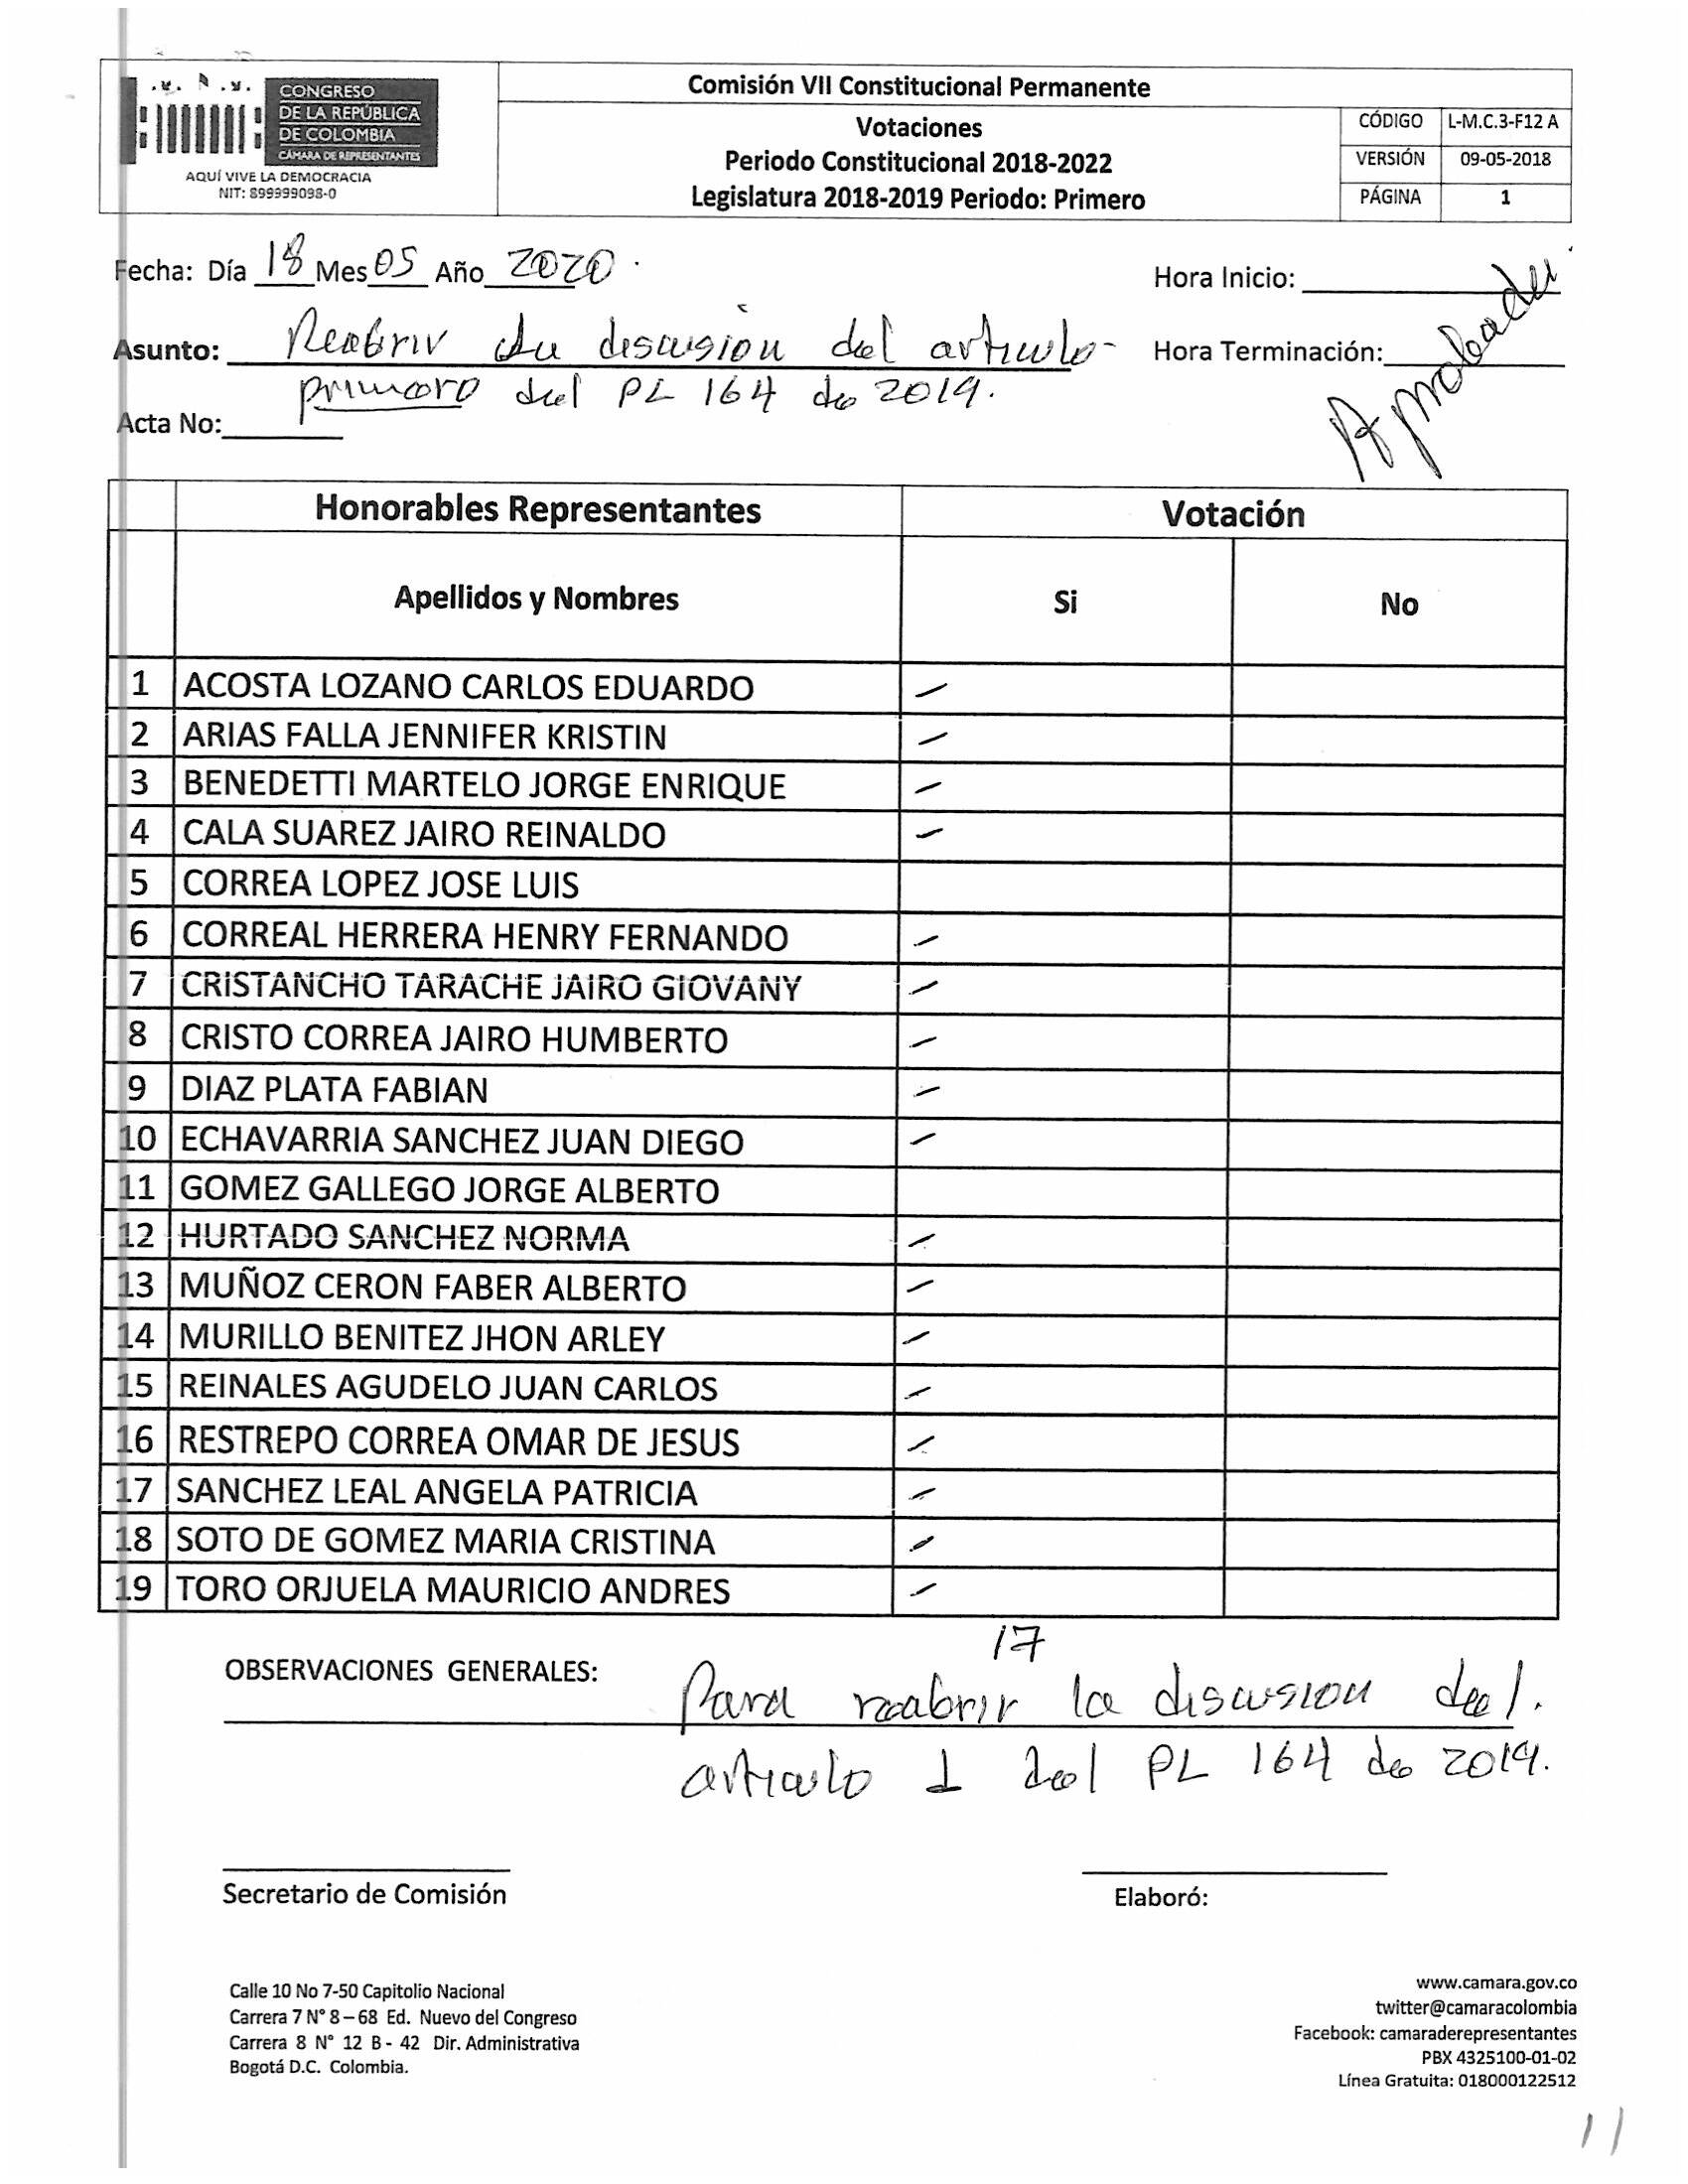 CONGRESO
DE LA REPÚBLICA
DE COLOMBIA
CÁMARA DE REPRESENTANTES
AQUÍ VIVE LA DEMOCRACIA
NIT: 899999098-0
Comisión VII Constitucional Permanente
Votaciones
Periodo Constitucional 2018-2022
Legislatura 2018-2019 Periodo: Primero
CÓDIGO L-M.C.3-F12 A
VERSIÓN 09-05-2018
PÁGINA 1
Fecha: Día 18 Mes 05 Año 2020.
Hora Inicio:
Asunto: Reabrir la discusión del articulo
primero del PL 164 de 2019.
Hora Terminación:
Aprobado
Acta No:
Honorables Representantes Votación
Apellidos y Nombres Si No
1 ACOSTA LOZANO CARLOS EDUARDO
2 ARIAS FALLA JENNIFER KRISTIN
3 BENEDETTI MARTELO JORGE ENRIQUE
4 CALA SUAREZ JAIRO REINALDO
5 CORREA LOPEZ JOSE LUIS
6 CORREAL HERRERA HENRY FERNANDO
7 CRISTANCHO TARACHE JAIRO GIOVANY
8 CRISTO CORREA JAIRO HUMBERTO
9 DIAZ PLATA FABIAN
10 ECHAVARRIA SANCHEZ JUAN DIEGO
11 GOMEZ GALLEGO JORGE ALBERTO
12 HURTADO SANCHEZ NORMA
13 MUÑOZ CERON FABER ALBERTO
14 MURILLO BENITEZ JHON ARLEY
15 REINALES AGUDELO JUAN CARLOS
16 RESTREPO CORREA OMAR DE JESUS
17 SANCHEZ LEAL ANGELA PATRICIA
18 SOTO DE GOMEZ MARIA CRISTINA
19 TORO ORJUELA MAURICIO ANDRES
17
OBSERVACIONES GENERALES:
Para reabrir la discusion del.
articulo 1 del PL 164 de 2019.
Secretario de Comisión
Elaboró:
Calle 10 No 7-50 Capitolio Nacional
Carrera 7 N° 8 – 68 Ed. Nuevo del Congreso
Carrera 8 N° 12 B - 42 Dir. Administrativa
Bogotá D.C. Colombia.
www.camara.gov.co
twitter@camaracolombia
Facebook: camaraderepresentantes
PBX 4325100-01-02
Línea Gratuita: 018000122512
11